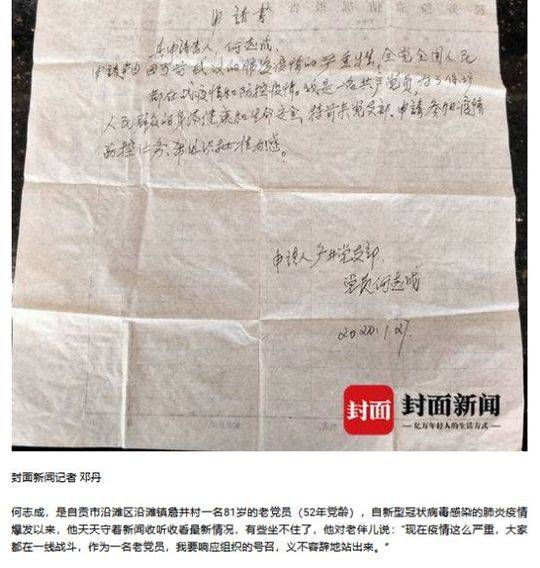 申請書
本申请人,何志成。
申请 武汉的肺炎疫情的严重性,全党全国人民
都在战疫情和防控疫情。我是一名共产党员,为了保护
人民群众的身体健康和生命安全,特前来党支部,申请参加疫情
防控任务,批准为感。
申请人 井党支部
党员何志成
2020.1.27.
封面 封面新闻
—亿万年轻人的生活方式—
封面新闻记者 邓丹
何志成,是自贡市沿滩区沿滩镇詹井村一名81岁的老党员(52年党龄),自新型冠状病毒感染的肺炎疫情
爆发以来,他天天守着新闻收听收看最新情况,有些坐不住了,他对老伴儿说:“现在疫情这么严重,大家
都在一线战斗,作为一名老党员,我要响应组织的号召,义不容辞地站出来。”